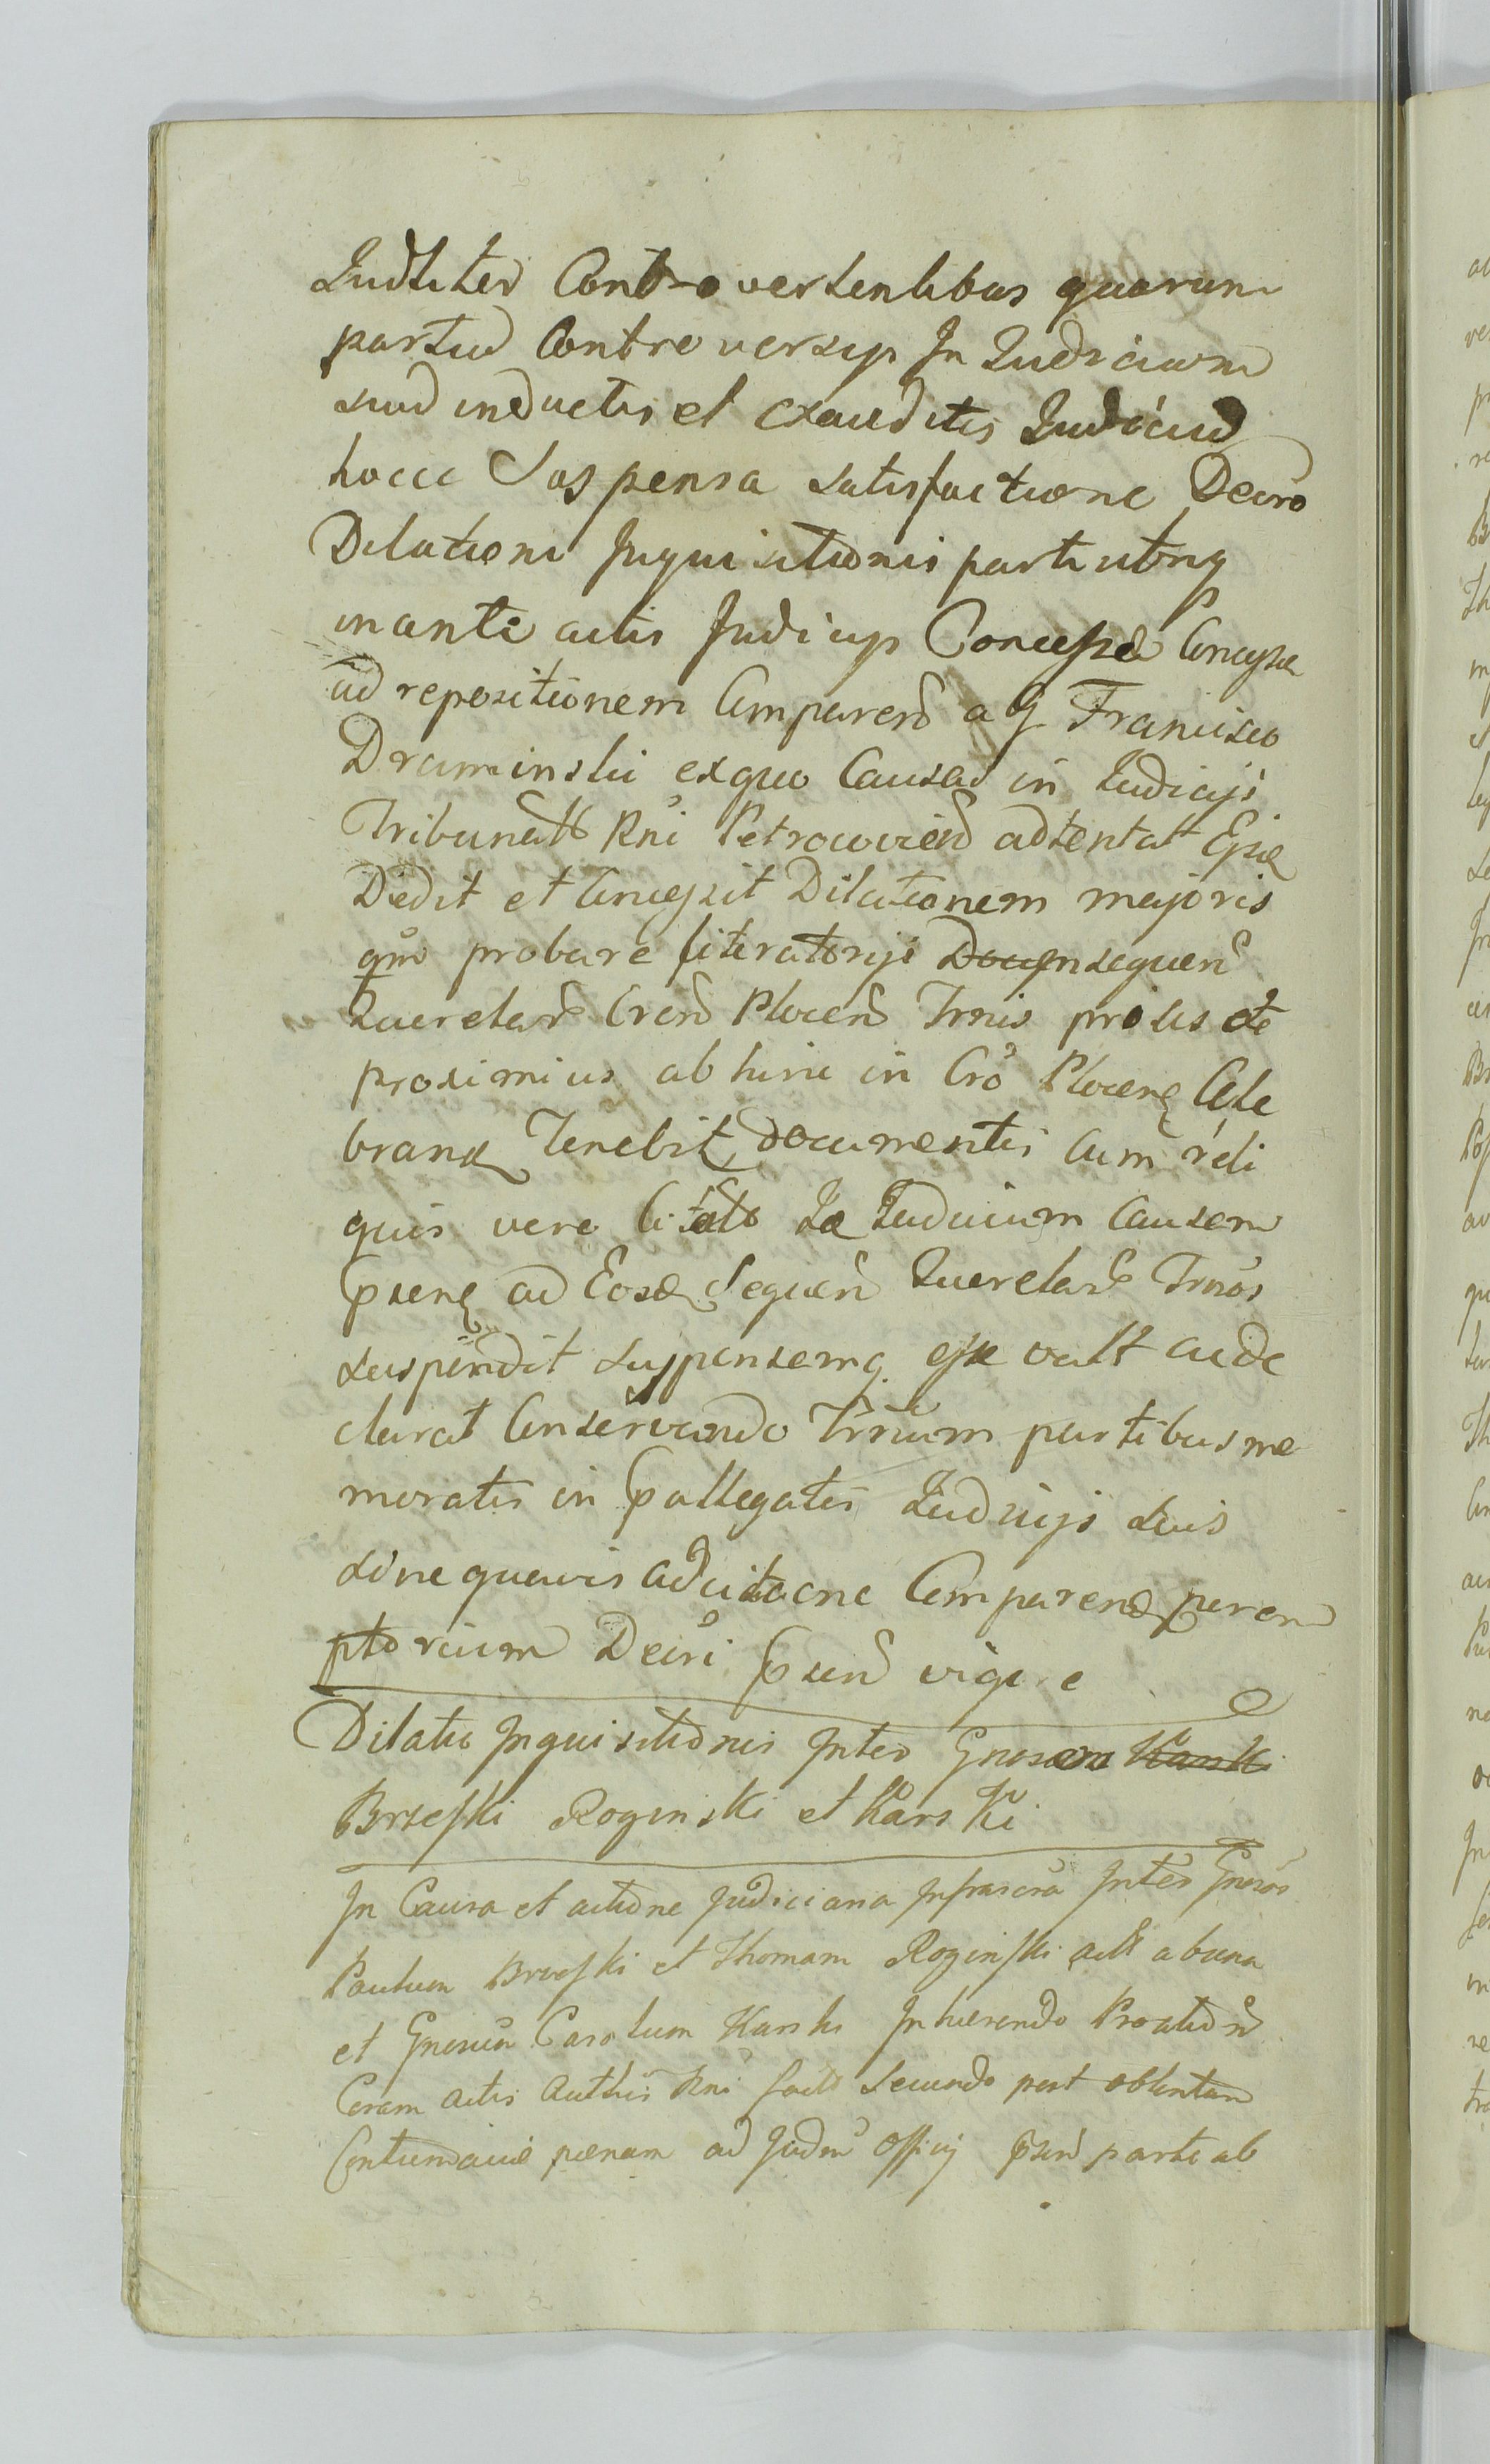 Iudliter Controvertentibus quarum
partiu Controversys In Iudicium
suu inductis et exauditis Iudiciu
hocce Suspensa satisfactione Decro
Dilationi Inquisitionis parti utrinq
in ante actis Judicys Concessa
ad repositionem Comparen a G Francisco
Draminski ex quo Causa in Iudicijs
Tribunal Rni Petrcovien adtentat
Dedit et Concessit Dilationem majoris
qm̃o probare literatorijs Docu in sequen
Querelar Cren Plocen Trnis prolis et
proximius ab hinc in Cro Plocen Cele
bran Tenebit, documentis cum reli
quis vero Iudicium Causam
psen ad Eosd Sequen Querelar Trnos
suspendit suspensamq esse vult ac de
clarat Conservando Trnum partibus me
moratis in pallegatis Iudicijs suis
sine quavis adcitaone Comparen perem
ptorium Decri psen vigore
Dilatio Inquisitionis Inter Gnosos Karski
Brzeski Roginski et Karski
In Causa et actione Judiciaria Infrascra Inter Gnosos
Paulum Brzeski et Thomam Roginski act ab una
et Gnosum Carolum Karski Inhaerendo Proation
Coram actis Authen Rni fact Secundo post oblentam
Contumaciae paenam ad Judm Officij psen parte ab